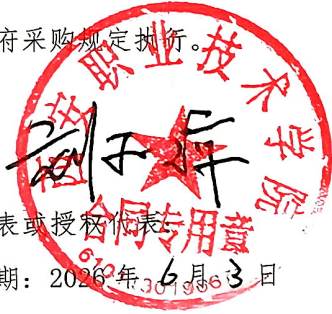 府采购规定执行。
西安职业技术学院
合同专用章
表或授权代表
期：2026年6月3日